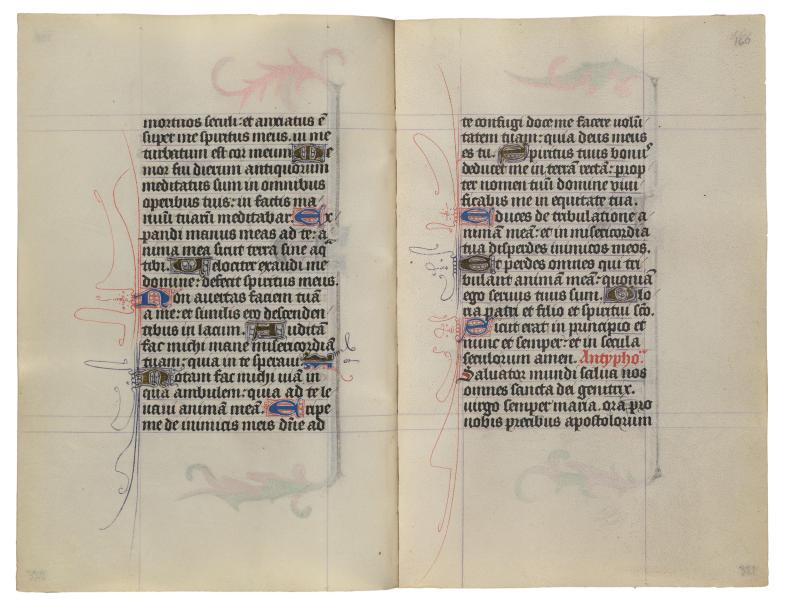 mortuos seculi: et anxiatus ē
super me spiritus meus. in me
turbatum est cor meum Me
mor fui dierum antiquorum
meditatus sum in omnibus
operibus tuis: in factis ma
nuū tuarū meditabar. Ex
pandi manus meas ad te: a
nima mea sicut terra sine aq
tibi. Velociter exaudi me
domine: defecit spiritus meus.
Non avertas faciem tuā
a me: et similis ero descenden
tibus in lacum. Auditā
fac michi mane misericordiā
tuam: quia in te speravi
Notam fac michi viā in
qua ambulem: quia ad te le
vavi animā meā. Eripe
me de inimicis meis dn̄e ad
160
te confugi doce me facere volū
tatem tuam: quia deus meus
es tu. Spiritus tuus bonus
deducet me in terrā rectā: prop
ter nomen tuū domine vivi
ficabis me in equitate tua.
Educes de tribulatione a
nimam meā: et in misericordia
tua disperdes inimicos meos.
Et perdes omnes qui tri
bulant animam meā: quoniā
ego servus tuus sum. Glo
ria patri et filio et spiritui scō.
Sicut erat in principio et
nunc et semper: et in secula
seculorum amen. Antypho
Salvator mundi salva nos
omnes sancta dei genitrix.
virgo semper maria. ora pro
nobis precibus apostolorum